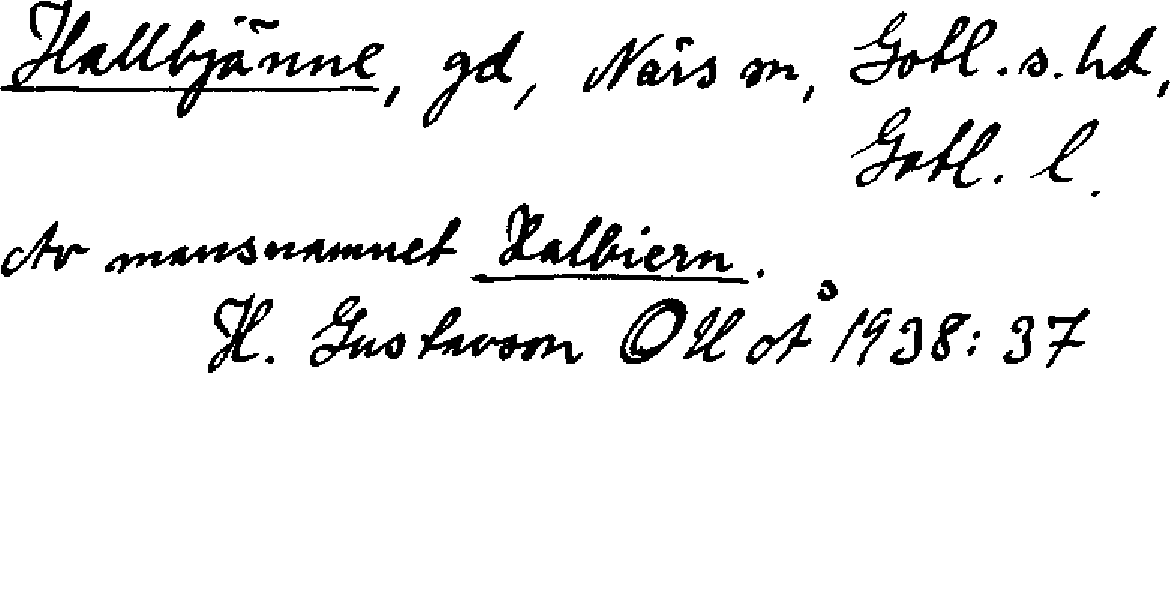 Hallbjänne, gd, Närs sn, Gotl. s. hd,
Gotl. l.
Av mansnamnet Halbiern.
H. Gustavson OUÅ 1938: 37